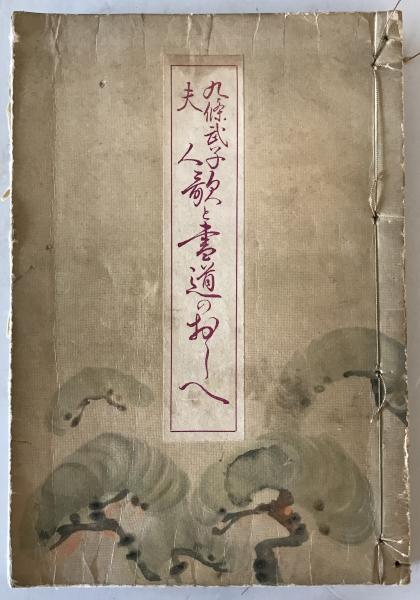 九條武子夫人歌と書道のおしへ